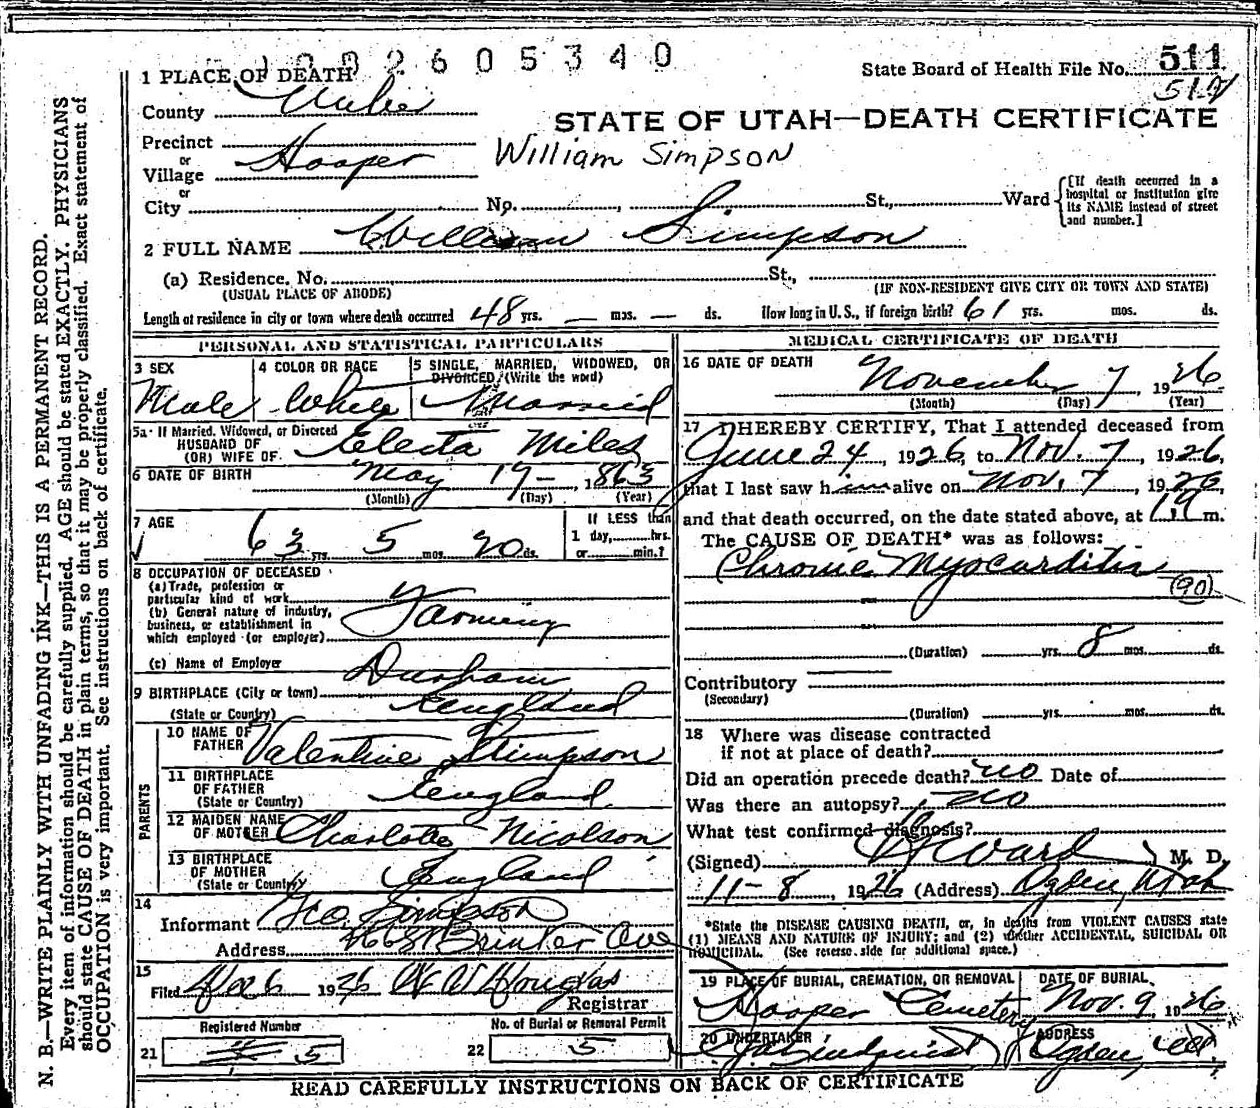 1002605340
State Board of Health File No. 511
512
1 PLACE OF DEATH
County Weber
STATE OF UTAH—DEATH CERTIFICATE
Precinct
or
Village Hooper
William Simpson
or
City No. , St., Ward
[If death occurred in a hospital or institution give its NAME instead of street and number.]
2 FULL NAME William Simpson
(a) Residence. No. St.,
(USUAL PLACE OF ABODE) (IF NON-RESIDENT GIVE CITY OR TOWN AND STATE)
Length of residence in city or town where death occurred 48 yrs. — mos. — ds. How long in U. S., if foreign birth? 61 yrs. mos. ds.
PERSONAL AND STATISTICAL PARTICULARS
3 SEX 4 COLOR OR RACE 5 SINGLE, MARRIED, WIDOWED, OR
DIVORCED (Write the word)
Male White Married
5a If Married, Widowed, or Divorced
HUSBAND OF
(OR) WIFE OF Electa Miles
6 DATE OF BIRTH May 17 - 1863
(Month) (Day) (Year)
7 AGE
63 yrs. 5 mos. 20 ds.
If LESS than
1 day, hrs.
or min.?
8 OCCUPATION OF DECEASED
(a) Trade, profession or
particular kind of work
(b) General nature of industry,
business, or establishment in
which employed (or employer)
Farming
(c) Name of Employer
9 BIRTHPLACE (City or town) Durham
(State or Country) England
PARENTS
10 NAME OF
FATHER Valentine Stimpson
11 BIRTHPLACE
OF FATHER
(State or Country) England
12 MAIDEN NAME
OF MOTHER Charlotte Nicolson
13 BIRTHPLACE
OF MOTHER
(State or Country) England
14
Informant Geo. Simpson
Address Brinker Ave
15
Filed 1926
Registrar
Registered Number No. of Burial or Removal Permit
21 5 22 5
MEDICAL CERTIFICATE OF DEATH
16 DATE OF DEATH November 7 1926
(Month) (Day) (Year)
17 I HEREBY CERTIFY, That I attended deceased from
June 24, 1926, to Nov. 7, 1926,
that I last saw him alive on Nov. 7, 1926,
and that death occurred, on the date stated above, at m.
The CAUSE OF DEATH* was as follows:
Chronic Myocarditis
(90)
(Duration) yrs. 8 mos. ds.
Contributory
(Secondary)
(Duration) yrs. mos. ds.
18 Where was disease contracted
if not at place of death?
Did an operation precede death? no Date of
Was there an autopsy? no
What test confirmed diagnosis?
(Signed) Ward M. D.
11-8, 1926 (Address) Ogden, Utah
*State the DISEASE CAUSING DEATH, or, in deaths from VIOLENT CAUSES state
(1) MEANS AND NATURE OF INJURY; and (2) whether ACCIDENTAL, SUICIDAL OR
HOMICIDAL. (See reverse side for additional space.)
19 PLACE OF BURIAL, CREMATION, OR REMOVAL DATE OF BURIAL
Hooper Cemetery Nov. 9 1926
20 UNDERTAKER ADDRESS
Lindquist Ogden, Ut.
READ CAREFULLY INSTRUCTIONS ON BACK OF CERTIFICATE
N. B.—WRITE PLAINLY WITH UNFADING INK—THIS IS A PERMANENT RECORD.
Every item of information should be carefully supplied. AGE should be stated EXACTLY. PHYSICIANS
should state CAUSE OF DEATH in plain terms, so that it may be properly classified. Exact statement of
OCCUPATION is very important. See instructions on back of certificate.